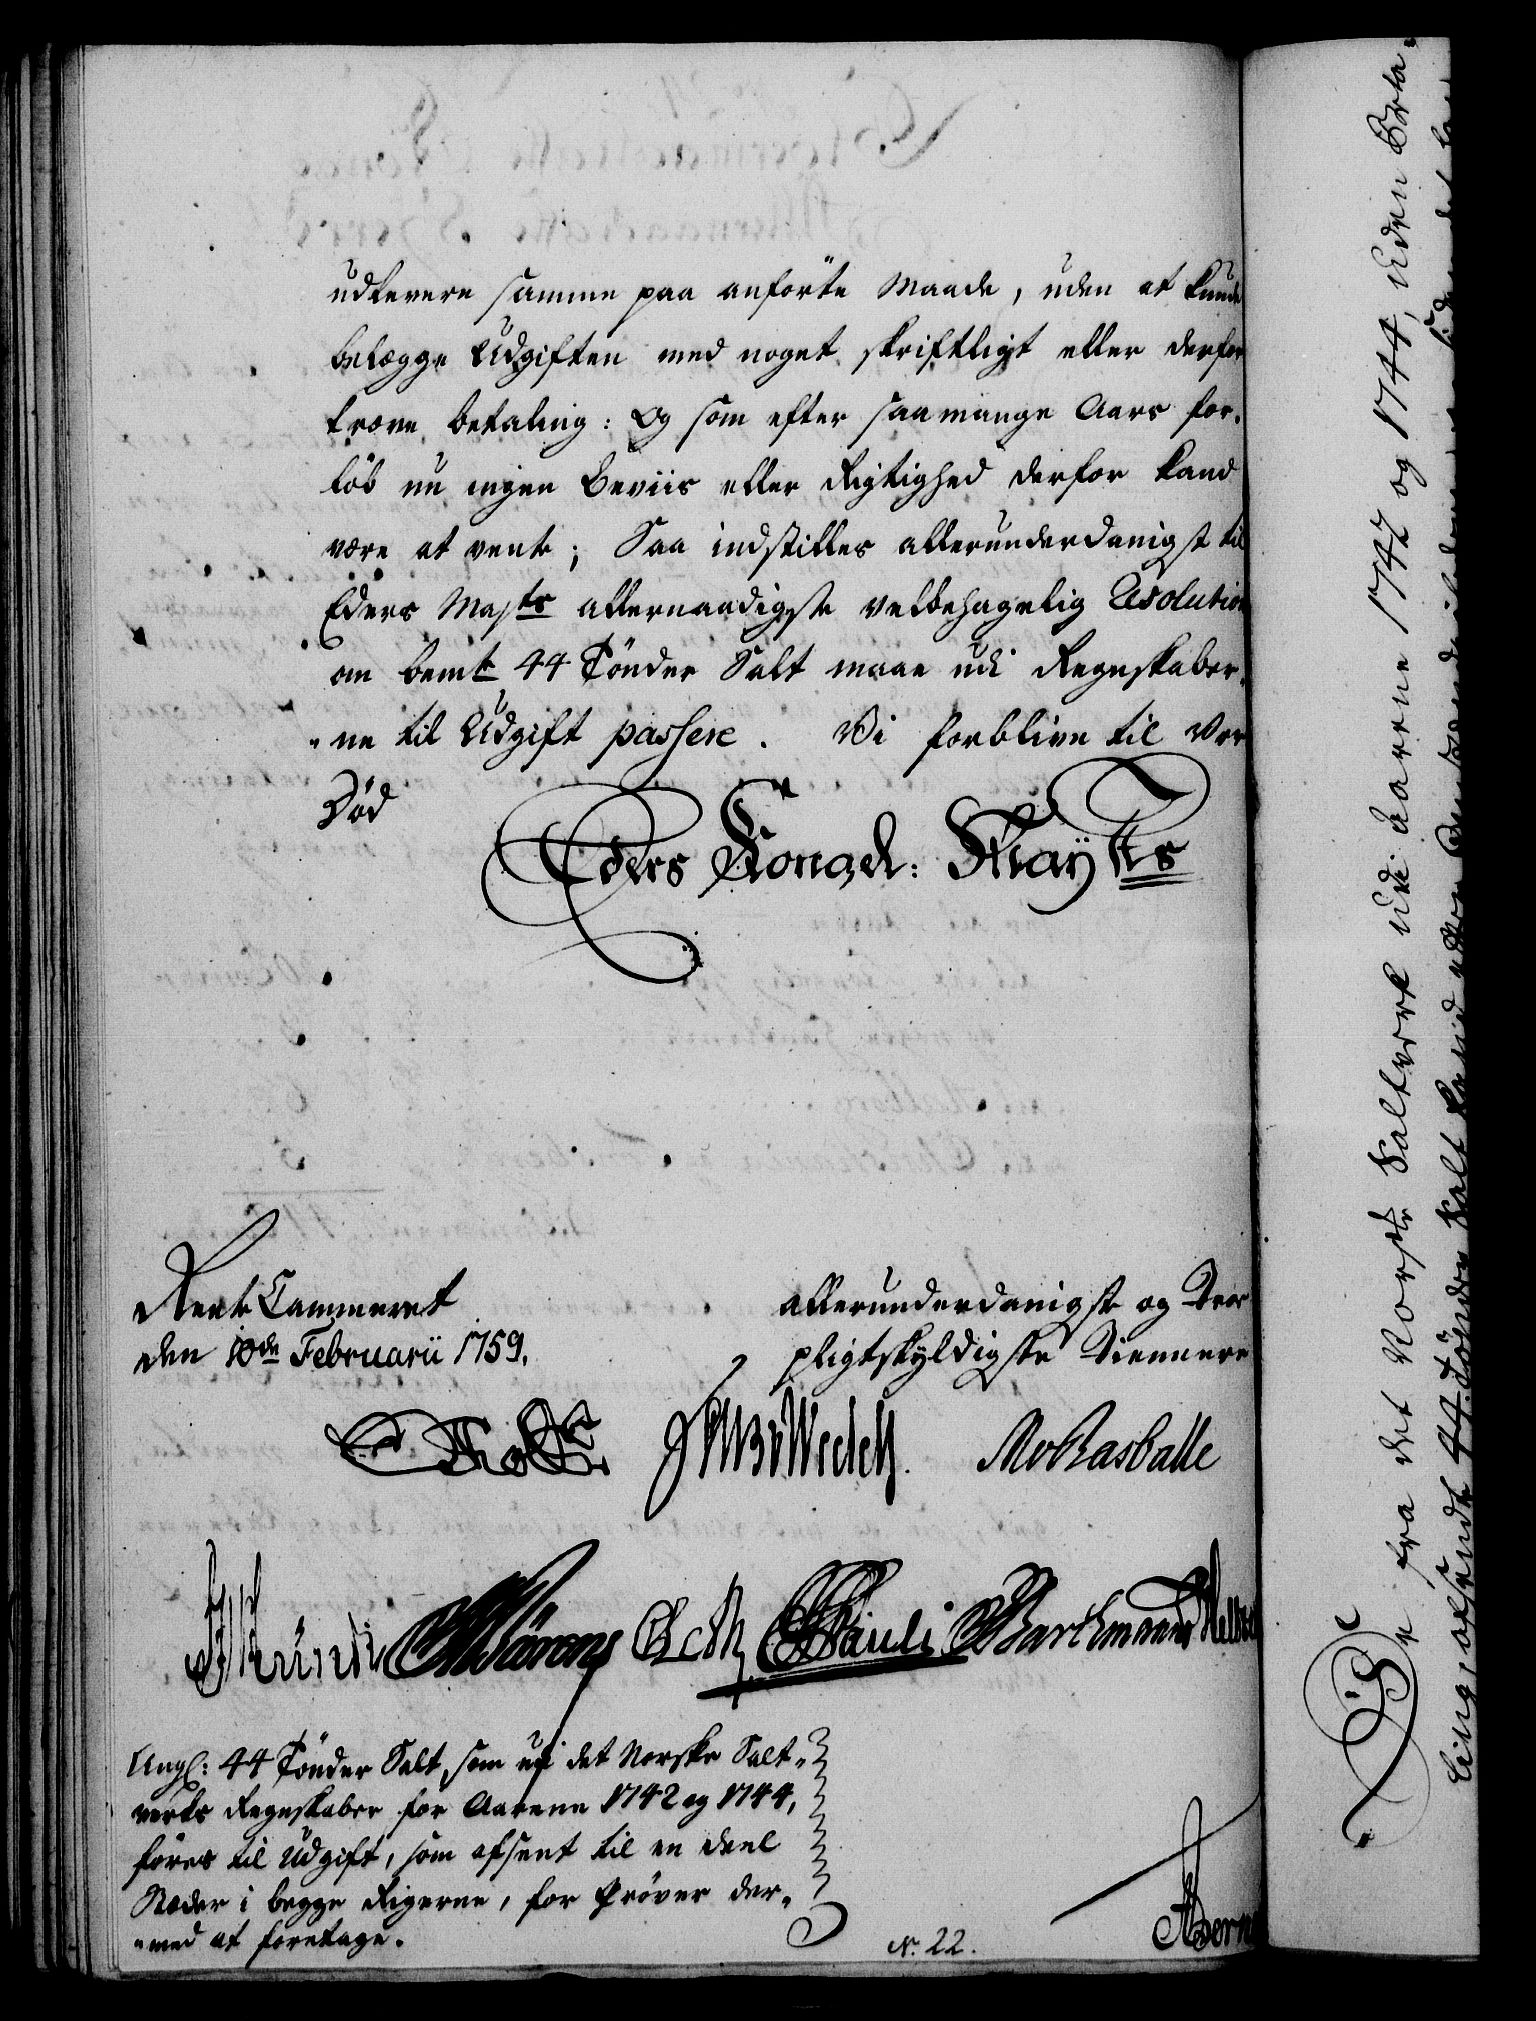 udlevere samme paa anförte Maade, uden at kunde
belægge Udgiften med noget skriftligt eller derfor
kræve betaling: Og som efter saamange Aars for-
löb nu ingen Beviis eller Rigtighed derfor kand
være at vente; Saa indstilles allerunderdanigst til
Eders Majts allernaadigste velbehagelig Resolution
om bemte 44 Tönder Salt maae udi Regnskaber-
"ne til Udgift passere. Vi forblive til vor
Död
Eders Kongel: Maytts
Rente Cammeret
den 10de Februarii 1759.
allerunderdanigst og Troe
pligtskyldigste Tiennere
Wedell.
Rasballe
Pauli
Barthmann
Angl: 44 Tönder Salt, som udi det Norske Salt-
verks Regnskaber for Aarene 1742 og 1744,
föres til Udgift, som afsent til en deel
Stæder i begge Rigerne, for Pröver der-
"med at foretage.
No. 22.
De fra det Norske Saltverk udi Aarene 1742 og 1744, uden Beta-
ling, afsendte 44 Tönder Salt